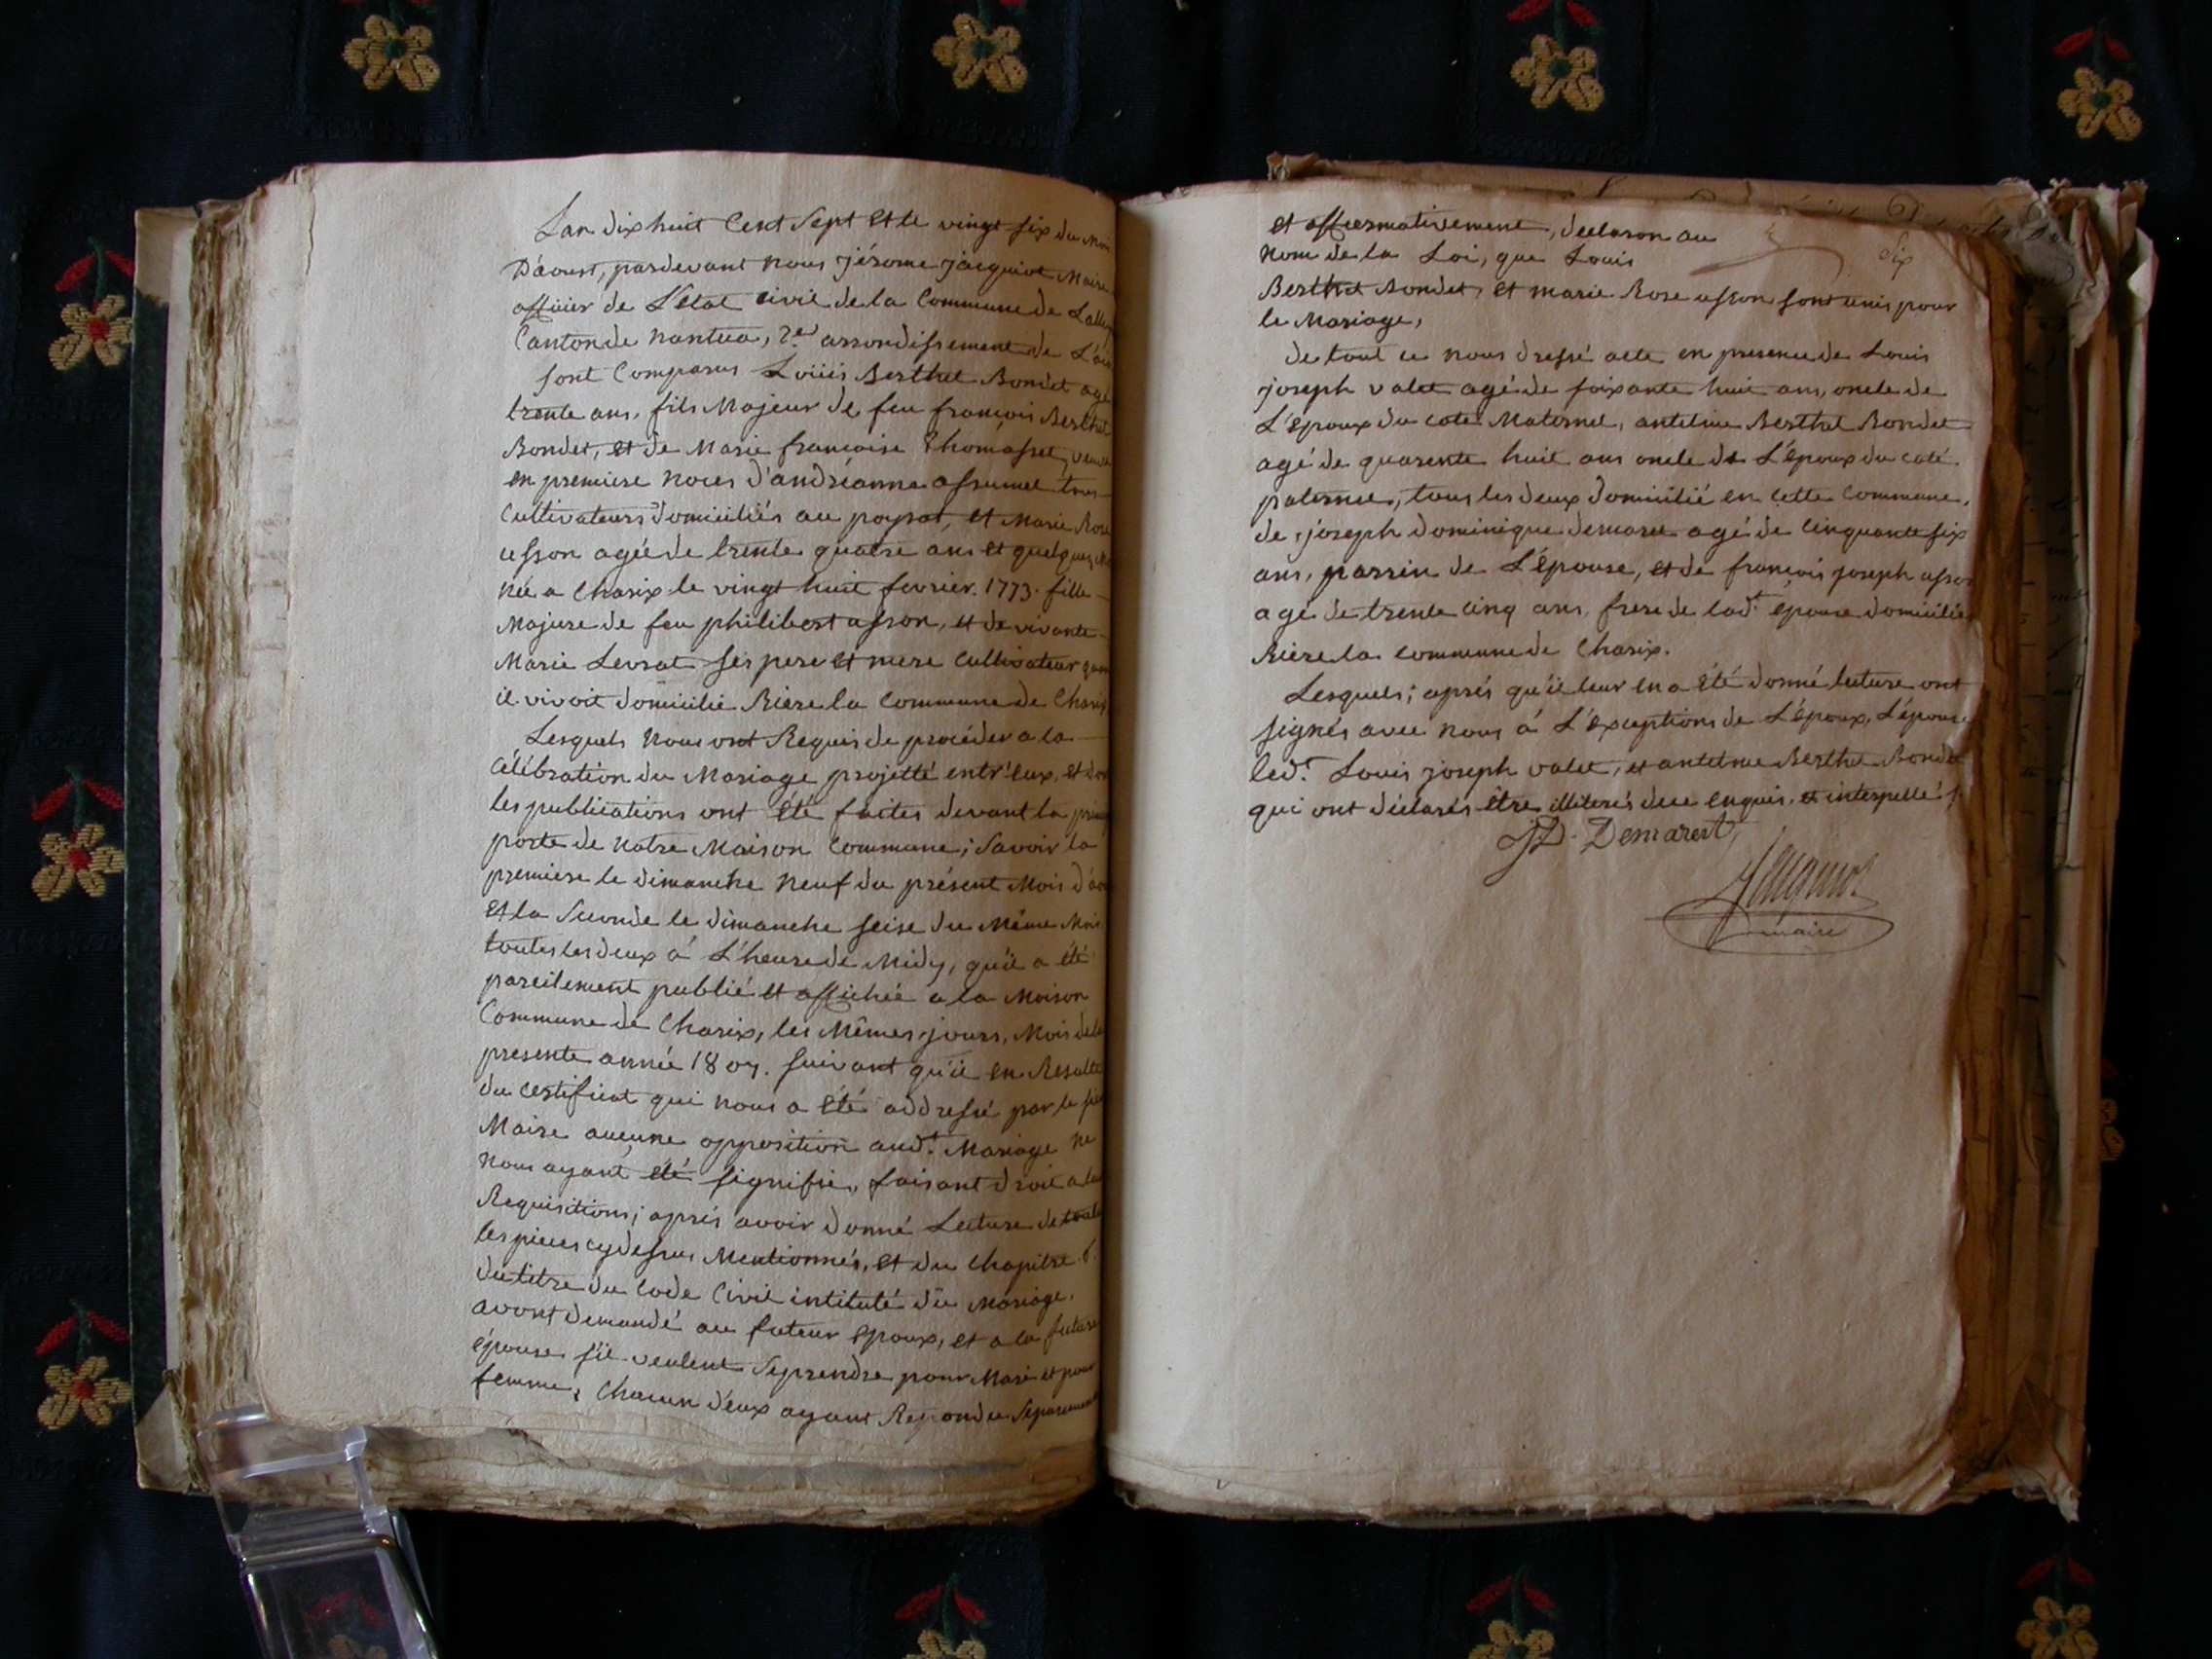 Lan dix huit Cent Sept et le vingt six du Mois
D'aoust, pardevant nous jérome jacquiot Maire
officier de L'Etat civil de la Commune de Lalley
Canton de nantua, 2.er arrondissement de L'ain
sont Comparus Loüis Berthet Bondet agé
trente ans, fils Majeur de feu françois Berthet
Bondet, et de Marie françoise Thomasset, veuve
en premiere noces d'andréanne assumel tous
Cultivateurs domiciliés au poysat, et Marie Rose
usson agée de trente quatre ans et quelques
née a Charix le vingt huit fevrier 1773. fille
Majure de feu philibert usson, et de vivante
Marie Levrat ses pere et mere Cultivateur quan
il vivoit domicilié Riere la Commune de Charix
Lesquels nous ont Requis de procéder a la
Célébration du Mariage projetté entr'eux, et don
les publications ont été faites devant la
porte de notre Maison Commune; Savoir la
premiere le dimanche neuf du présent Mois d'ao
et la Seconde le dimanche seise du Même Mois
toutes les deux á L'heure de Midy, qu'il a été
pareilement publié et affichée a la Maison
Commune de Charix, les Mêmes jours, Mois de la
presente année 1807. suivant qu'il en Resulte
du certificat qui nous a été addressé par le
Maire aucune opposition aud.t Mariage ne
nous ayant été signifié, faisant droit a
Requisitions; aprés avoir donné Lecture de toute
les pieces cydessus Mentionnés, et du Chapitre 6.
du titre du Code Civil intitulé du Mariage.
avont demandé au futeur epoux, et a la future
épouse s'il veulent Seprendre pour Mari et pour
femme, Chacun d'eux ayant Repondu Séparement
Six
et affiermativement, declaron au
nom de la Loi, que Louis
Berthet Bondet, et marie Rose usson sont unis pour
le Mariage,
de tout ce nous dressé acte en presence de Louis
joseph valet agé de soixante huit ans, oncle de
L'époux du coté Maternel, antelme Berthet Bondet
agé de quarente huit ans oncle de L'époux du coté
paternel, tous les deux domicilié en cette commune,
de joseph dominique demaret agé de Cinquante six
ans, parrin de L'épouse, et de françois joseph usson
agé de trente cinq ans, frere de lad.t epouse domicilié
Riere la commune de Charix.
Lesquels; aprés qu'il leur en a été donné lecture ont
signés avec nous á L'exceptions de L'époux, L'épouse
led.t Louis joseph valet, et antelme Berthet Bondet
qui ont déclarés être illiterés de ce enquis et interpellé
JD. Demarest,
Jacquiot
maire